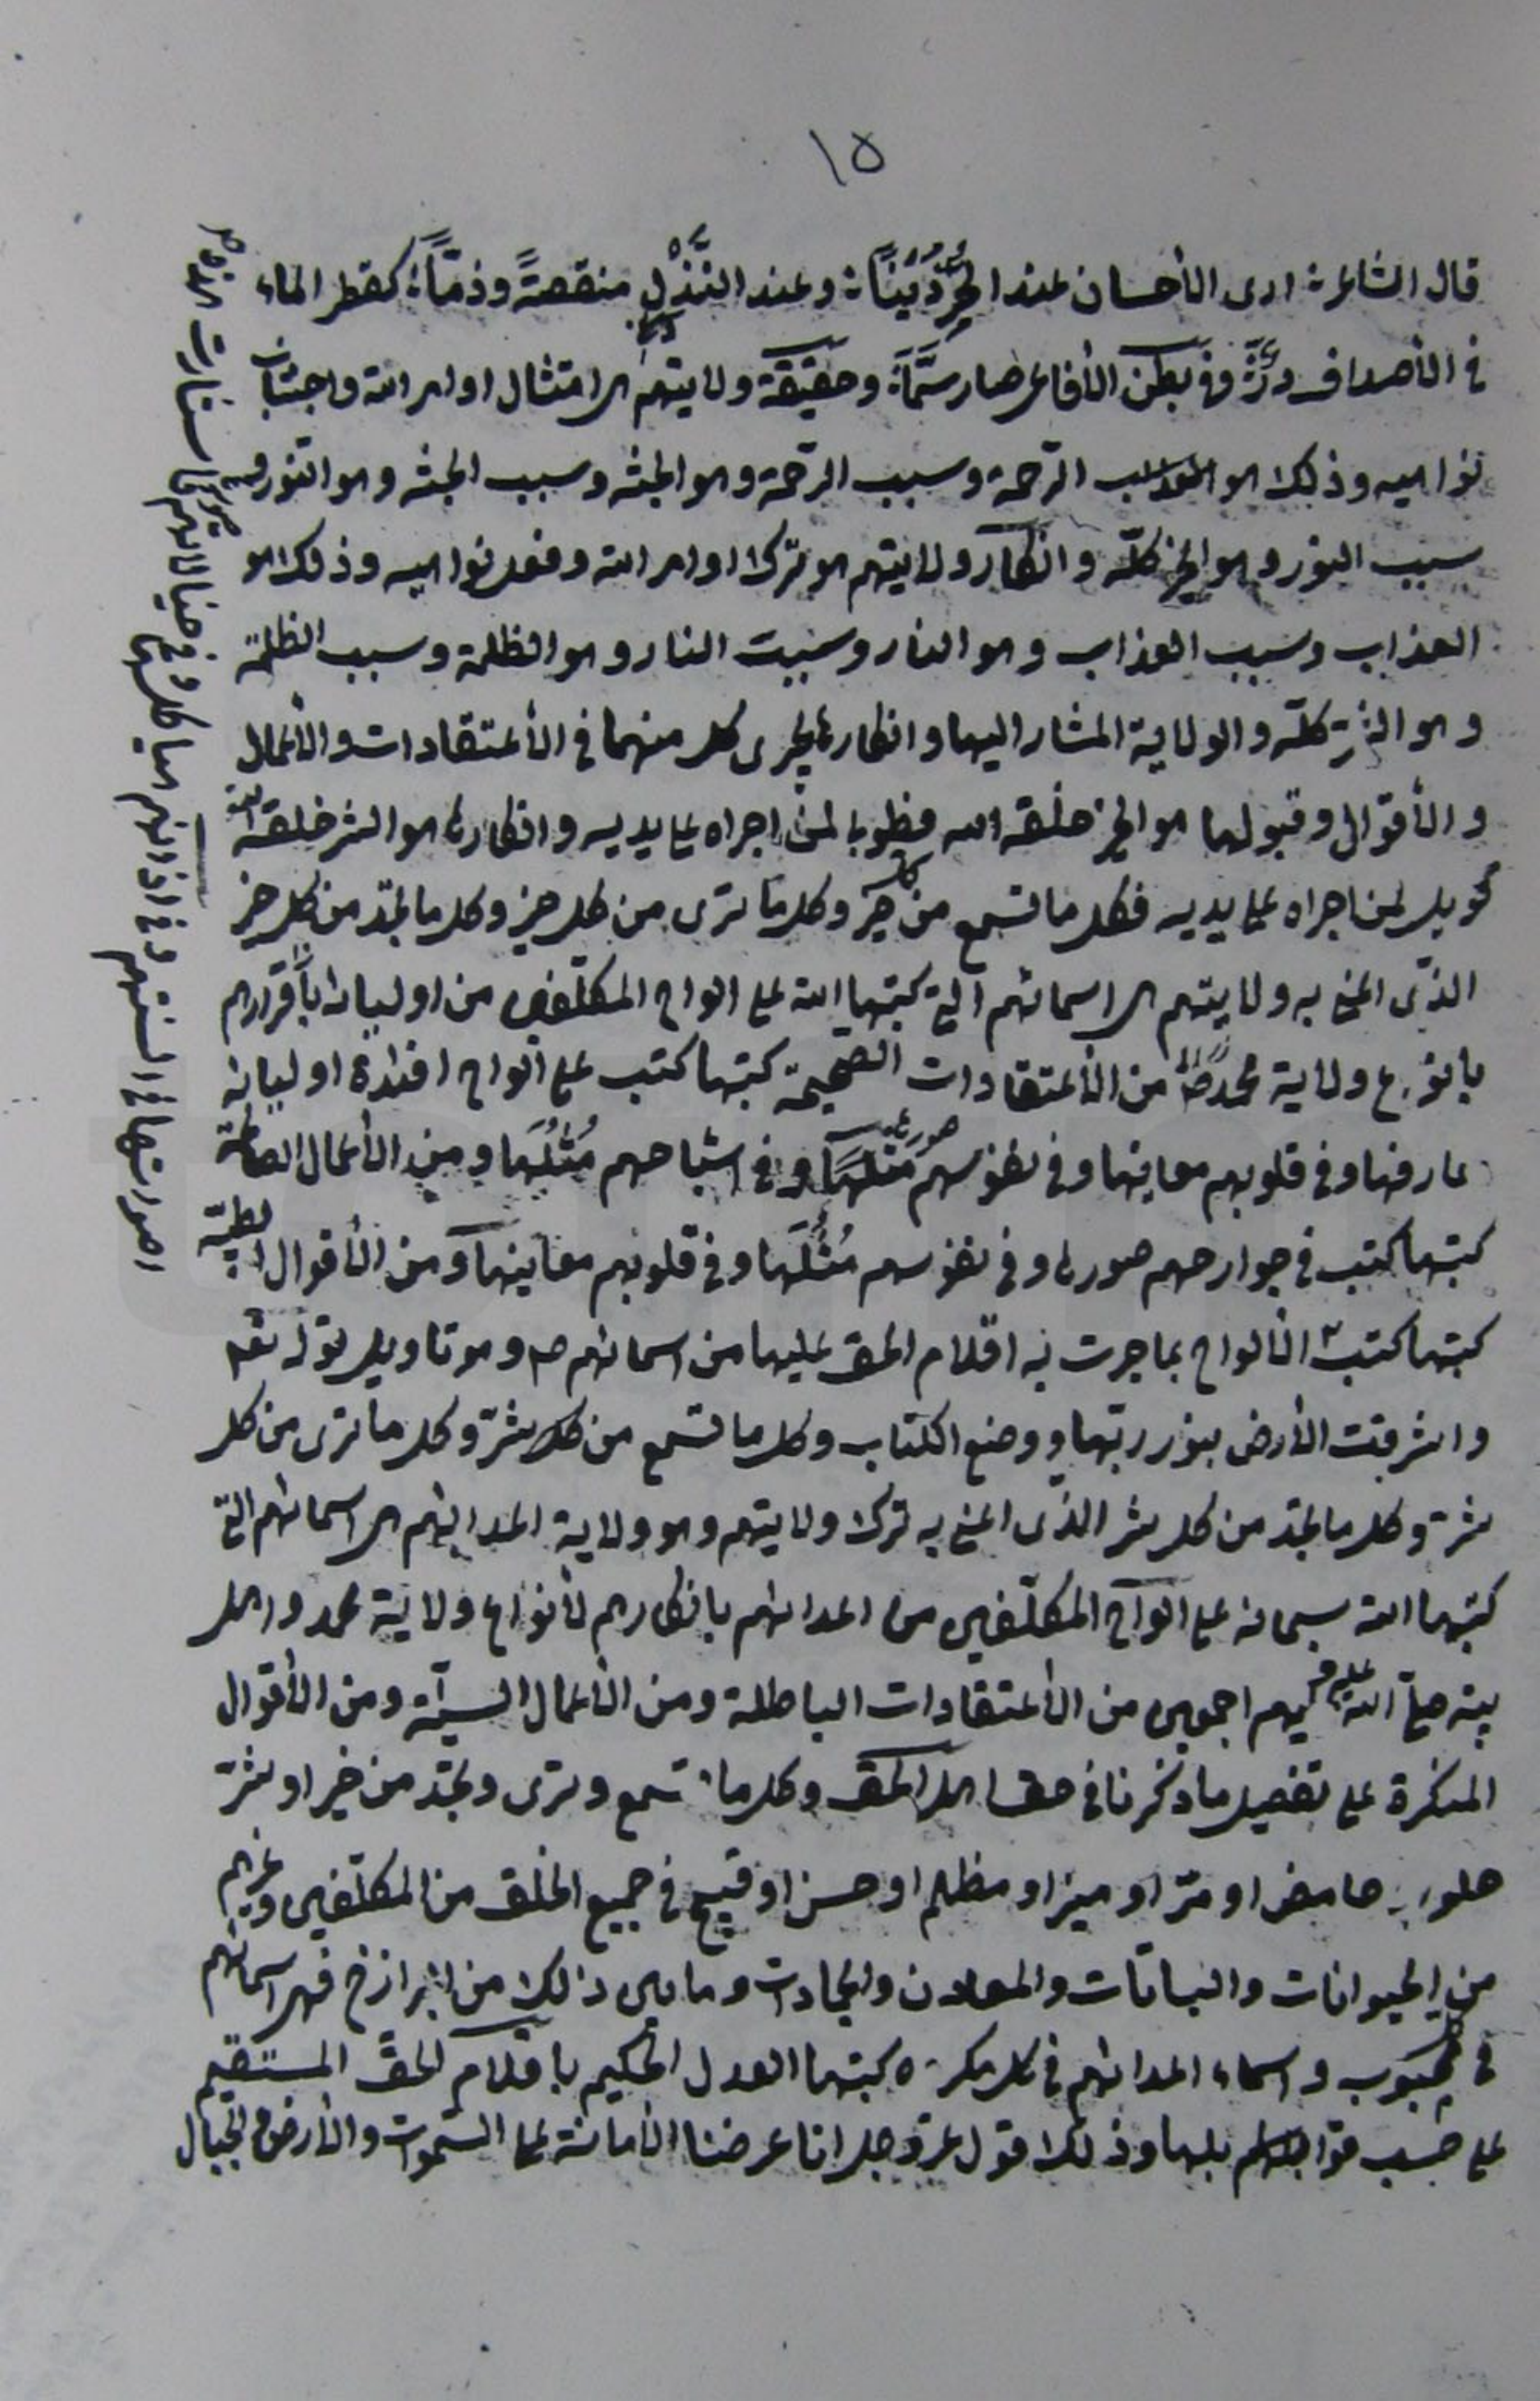 ١٥
قال الشاعر: ارى الأحسان عند الحُرِّ دَيْنًا: وعند النَّذْلِ منقصةً وذمًّا: كقطر الماء
في الأصداف درٌّ وفي بطن الأفاعي صار سَمًّا وحقيقة ولايتهم هى امتثال اوامر الله واجتناب
نواهيه وذلك هو الرحمة وسبب الرحمة وهو الجنّة وسبب الجنّة وهو النّور و
سبب النور وهو الخير كلّه وانكار ولايتهم هو ترك اوامر الله وفعل نواهيه وذلك هو
العذاب وسبب العذاب وهو النار وسبب النار وهو الظلمة وسبب الظلمة
وهو الشرّ كلّه والولاية المشار اليها وانكارها يجرى كل منهما في الأعتقادات والأعمال
والأقوال وقبولها هو الخير خلقه الله فطوبا لمن اجراه على يديه وانكارها هو الشر خلقه الله
فويل لمن اجراه على يديه فكل ما تسمع من كل خير وكل ما ترى من كل خير وكل ما تجد من كل خير
الذّى المعنى به ولايتهم هى اسمائهم الّتى كتبها الله على الواح المكلّفين من اوليائه بأقرارهم
بانواع ولاية محمد ص من الأعتقادات الصّحيحة كتبها كتب على الواح افئدة اوليائه
معارفها وفي قلوبهم معانيها وفي نفوسهم صورها وفي اشباحهم مُثُلَها ومن الأعمال الصالحة
كتبها كتب في جوارحهم صورها وفي نفوسهم مُثُلَها وفي قلوبهم معانيها ومن الأقوال الطيّبة
كتبها كتب الألواح بما جرت به اقلام الحق عليها من اسمائهم ص وهو تاويل قوله تعه
واشرقت الأرض بنور ربّها ووضع الكتاب وكل ما تسمع من كل شرّ وكل ما ترى من كل
شرّ وكل ما تجد من كل شر الذّى المعنى به ترك ولايتهم وهو ولاية اعدائهم هى اسمائهم التى
كتبها الله سبحانه على الواح المكلّفين من اعدائهم بانكارهم لأنواع ولاية محمد واهل
بيته صلّى الله عليه وعليهم اجمعين من الأعتقادات الباطلة ومن الأعمال السيّئة ومن الأقوال
المنكرة على تفصيل ما ذكرنا في حق اهل الحق وكل ما تسمع وترى وتجد من خير او شرّ
حلو او حامض او مرّ او منير او مظلم او حسن او قبيح في جميع الخلق من المكلّفين وغيرهم
من الحيوانات والنباتات والمعادن والجمادات وما بين ذلك من البرازخ فهى اسمائهم
في كل محبوب واسماء اعدائهم في كل مكروه كتبها العدل الحكيم باقلام الحقّ المستقيم
على حسب قوابلهم لها وذلك قول عزّ وجل انا عرضنا الأمانة على السّموات والأرض والجبال